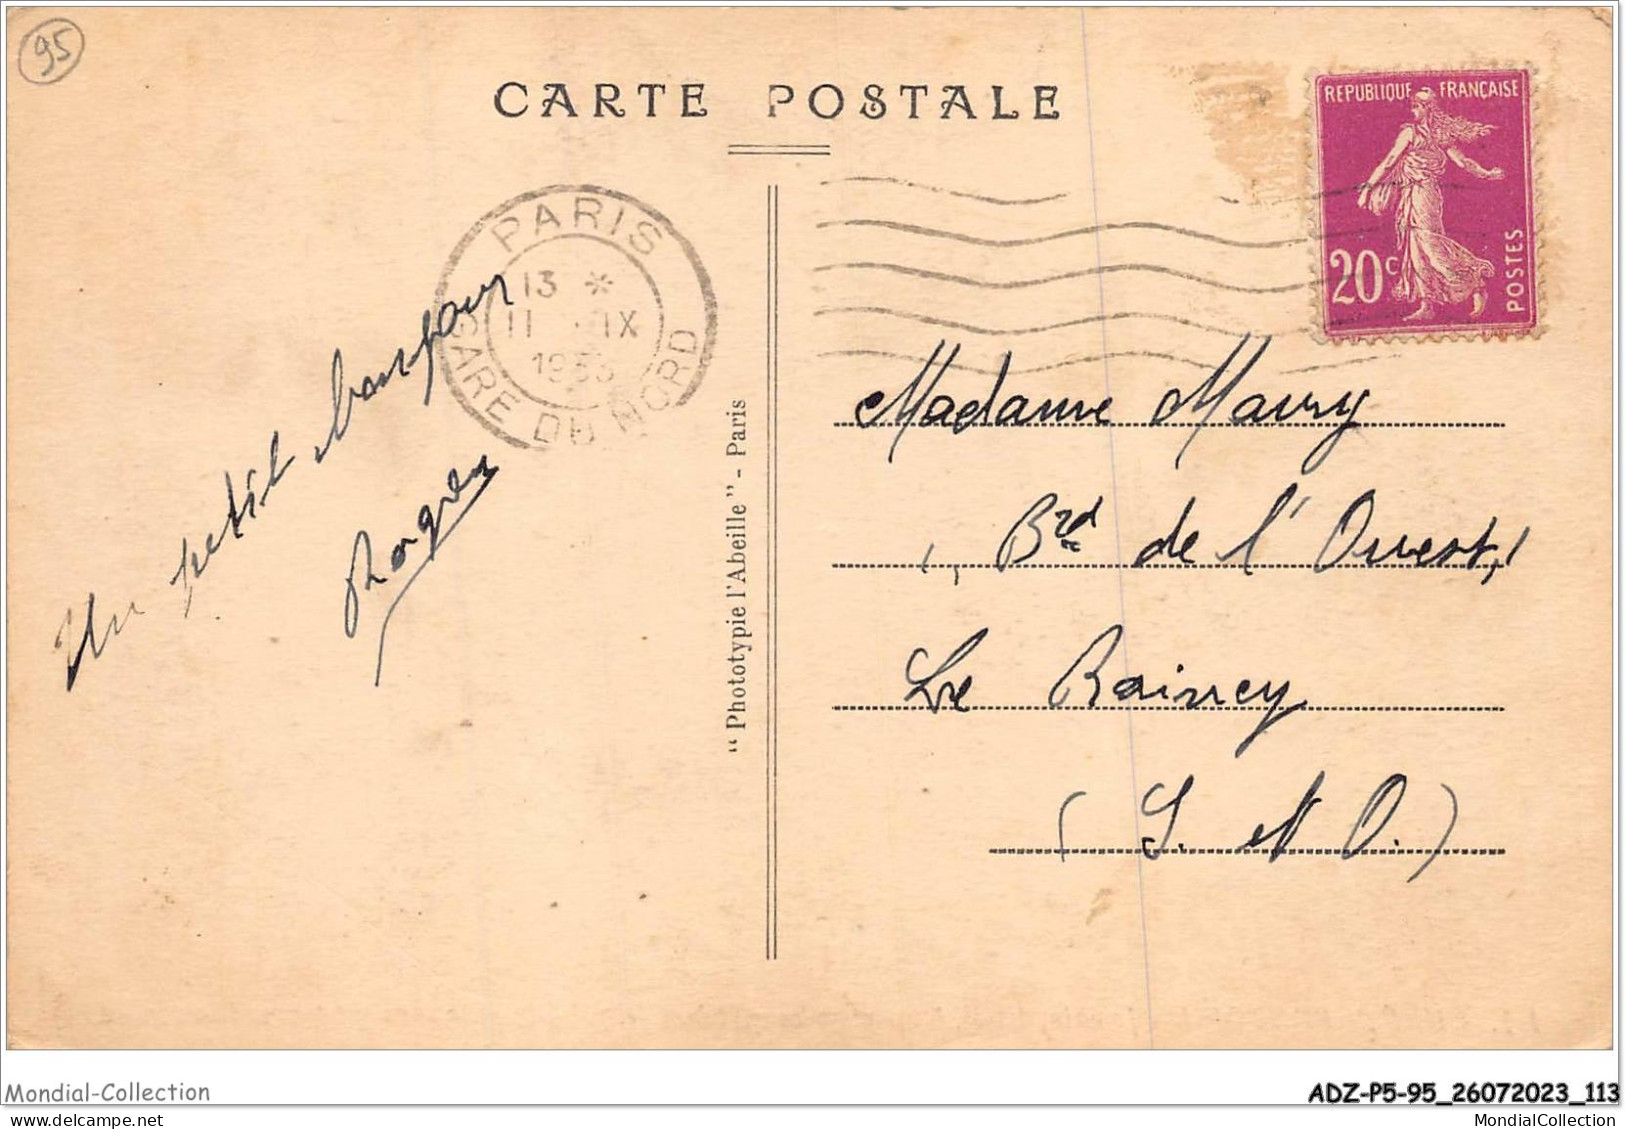 95
CARTE POSTALE
REPUBLIQUE FRANÇAISE
20c
POSTES
PARIS
13 *
11 IX
GARE DU NORD
Un petit bonjour
Madame Maury
, Brd de l'Ouest,
Le Raincy
(S. et O.)
“Phototypie l'Abeille” - Paris
Mondial-Collection
ADZ-P5-95_26072023_113
MondialCollection
MondialCollection